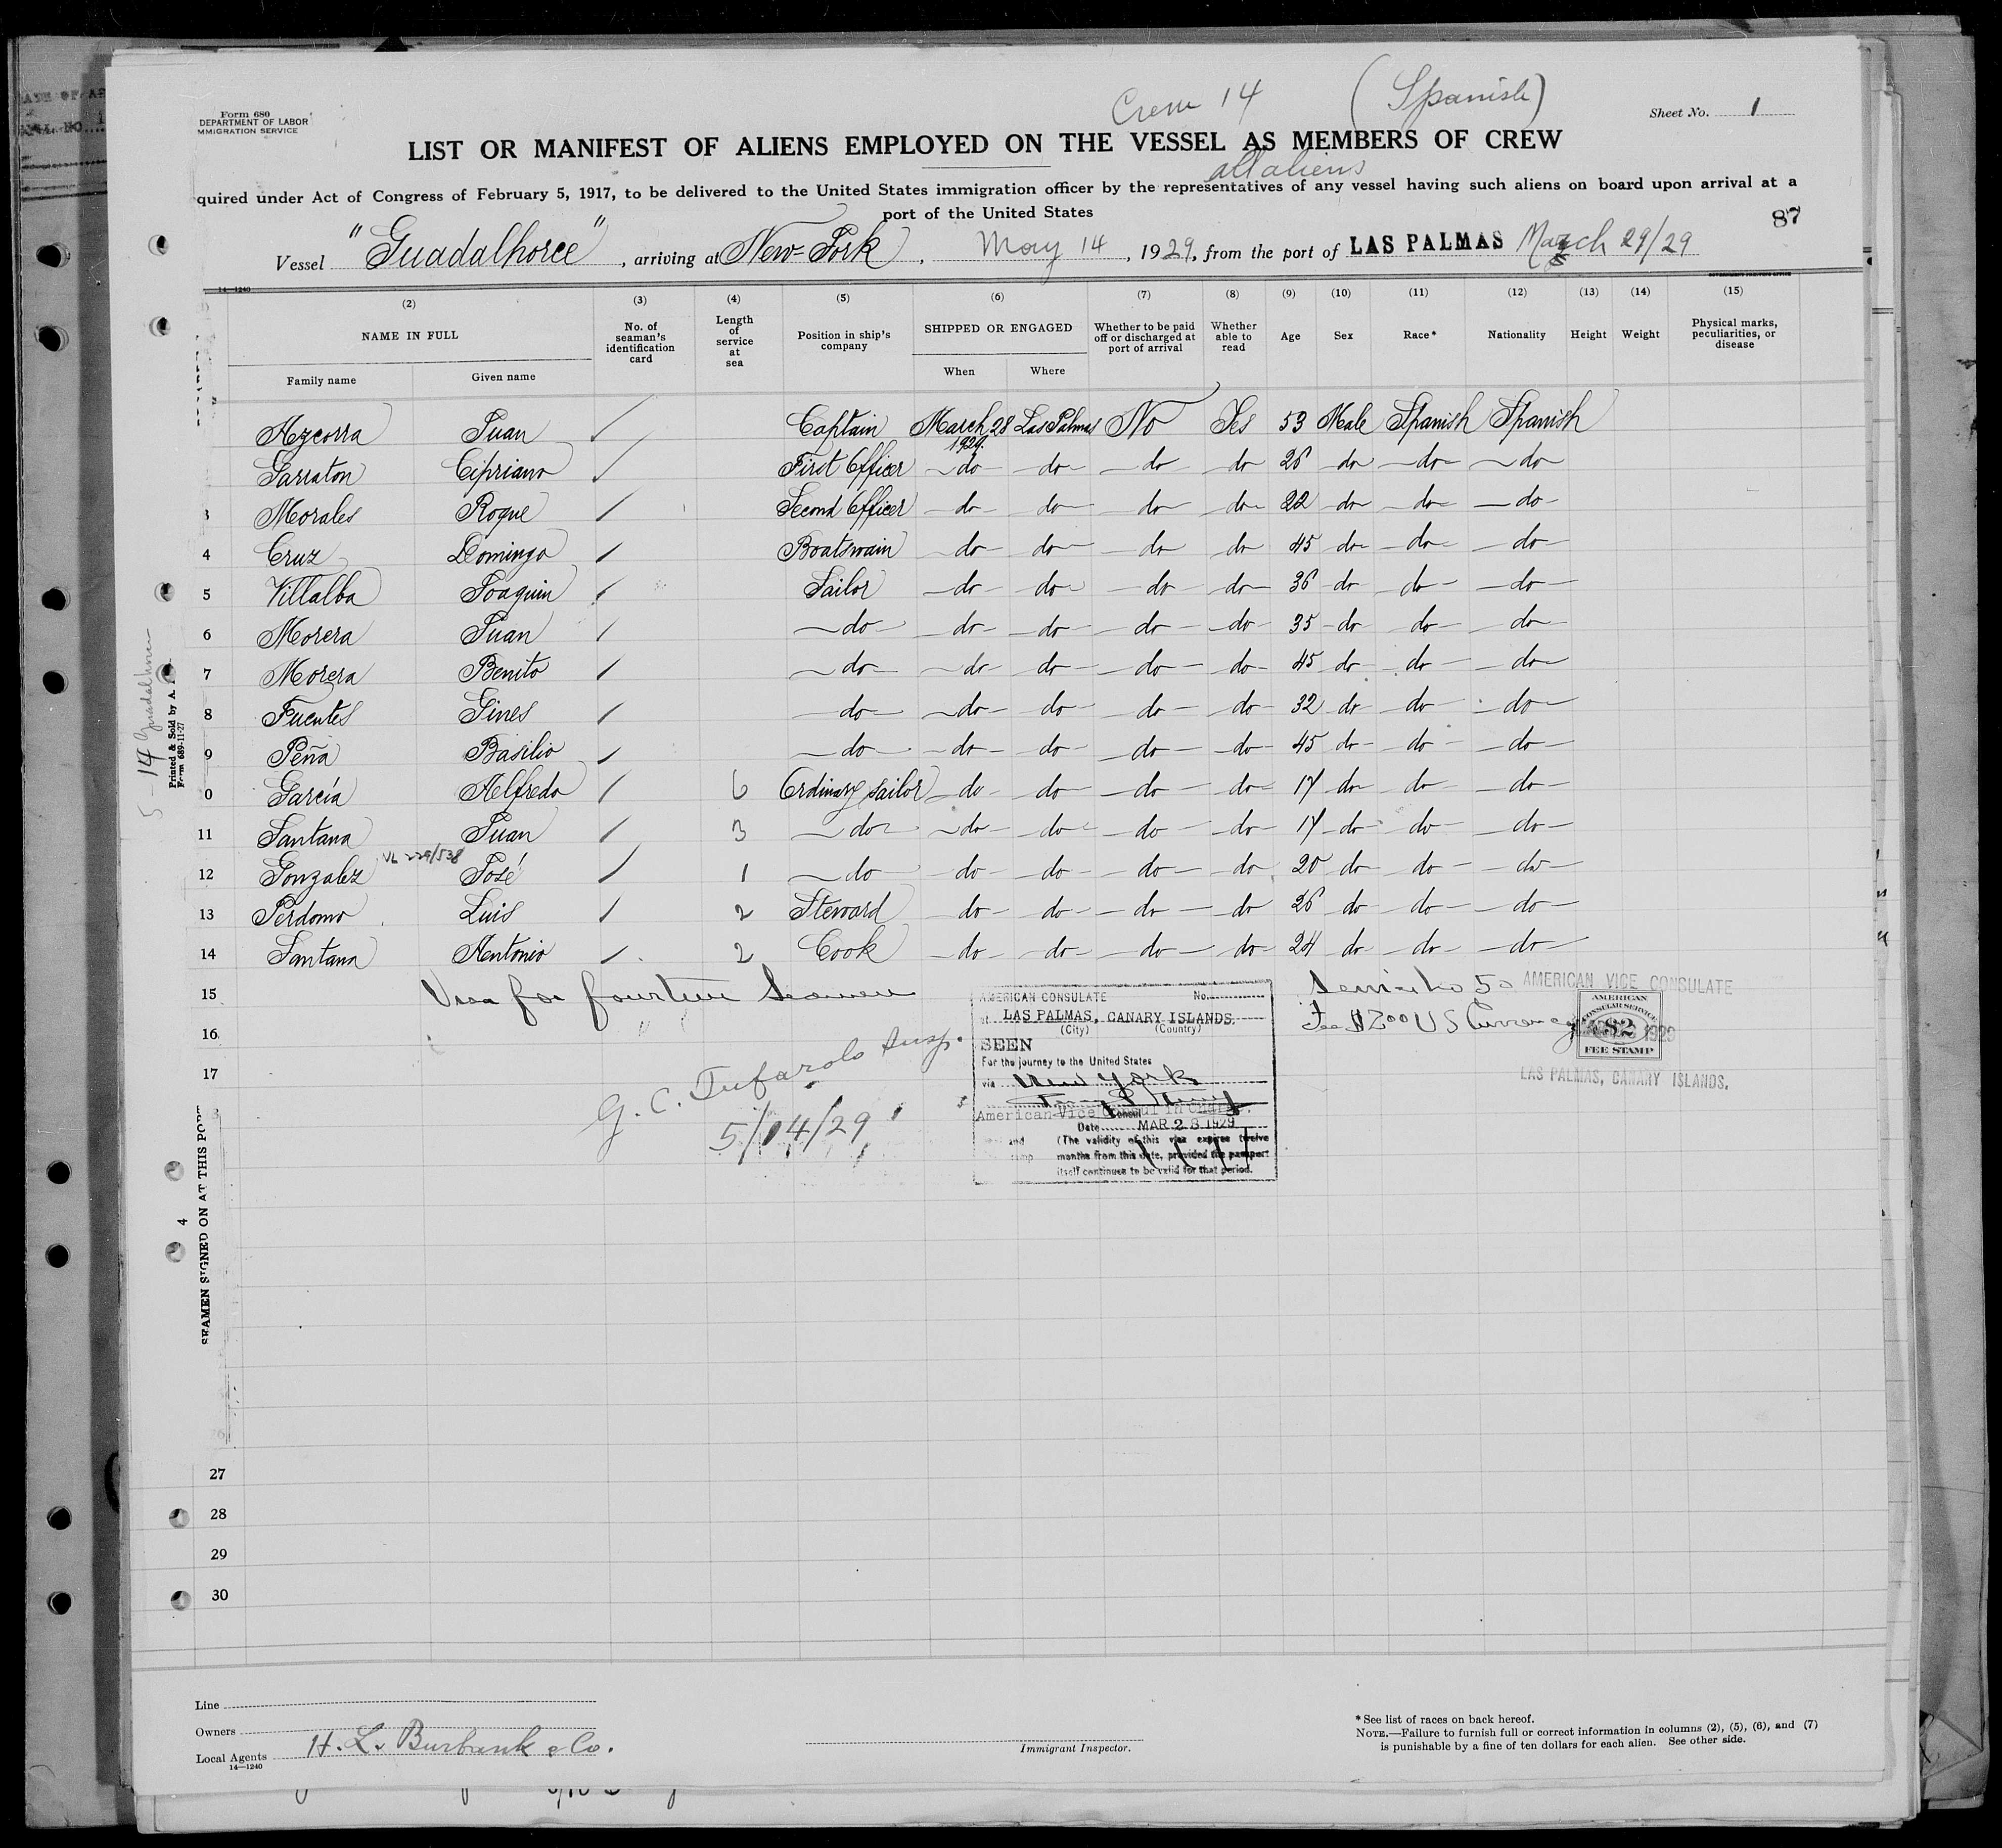 Crew 14 (Spanish)
Form 680
DEPARTMENT OF LABOR
MMIGRATION SERVICE
Sheet No. 1
LIST OR MANIFEST OF ALIENS EMPLOYED ON THE VESSEL AS MEMBERS OF CREW
all aliens
quired under Act of Congress of February 5, 1917, to be delivered to the United States immigration officer by the representatives of any vessel having such aliens on board upon arrival at a
port of the United States
87
Vessel "Guadalhorce", arriving at New-York, May 14, 1929, from the port of LAS PALMAS March 29/29
14-1240
(2) (3) (4) (5) (6) (7) (8) (9) (10) (11) (12) (13) (14) (15)
NAME IN FULL No. of seaman's identification card Length of service at sea Position in ship's company SHIPPED OR ENGAGED Whether to be paid off or discharged at port of arrival Whether able to read Age Sex Race* Nationality Height Weight Physical marks, peculiarities, or disease
Family name Given name When Where
Azcorra Juan / Captain March 28 1929. Las Palmas No Yes 53 Male Spanish Spanish
Garraton Cipriano / First Officer do do do do 26 do do do
3 Morales Roque / Second Officer do do do do 22 do do do
4 Cruz Domingo / Boatswain do do do do 45 do do do
5 Villalba Joaquin / Sailor do do do do 36 do do do
6 Morera Juan / do do do do do 35 do do do
7 Morera Benito / do do do do do 45 do do do
8 Fuentes Gines / do do do do do 32 do do do
9 Peña Basilio / do do do do do 45 do do do
0 García Alfredo / 6 Ordinary sailor do do do do 17 do do do
11 Santana Juan / 3 do do do do do 17 do do do
VL 229/538
12 Gonzalez José / 1 do do do do do 20 do do do
13 Perdomo Luis / 2 Steward do do do do 26 do do do
14 Santana Antonio / 2 Cook do do do do 24 do do do
15 Visa for fourteen Seamen
16
17
G. C. Tufarolo Insp.
5/14/29
AMERICAN CONSULATE No.
at LAS PALMAS, CANARY ISLANDS.
(City) (Country)
SEEN
For the journey to the United States
via New York
American Vice Consul in Charge.
Date MAR 28 1929
(The validity of this visa expires twelve
months from this date, provided the passport
itself continues to be valid for that period.
Service No 50
Fee $2.00 US Currency
AMERICAN VICE CONSULATE
AMERICAN
CONSULAR SERVICE
$2
FEE STAMP
1929
LAS PALMAS, CANARY ISLANDS.
5-14 Guadalhorce
Printed & Sold by A.
Form 689-11-27
4
SEAMEN SIGNED ON AT THIS PORT
27
28
29
30
Line
Owners
Local Agents H. L. Burbank & Co.
14-1240
Immigrant Inspector.
* See list of races on back hereof.
NOTE.—Failure to furnish full or correct information in columns (2), (5), (6), and (7)
is punishable by a fine of ten dollars for each alien. See other side.